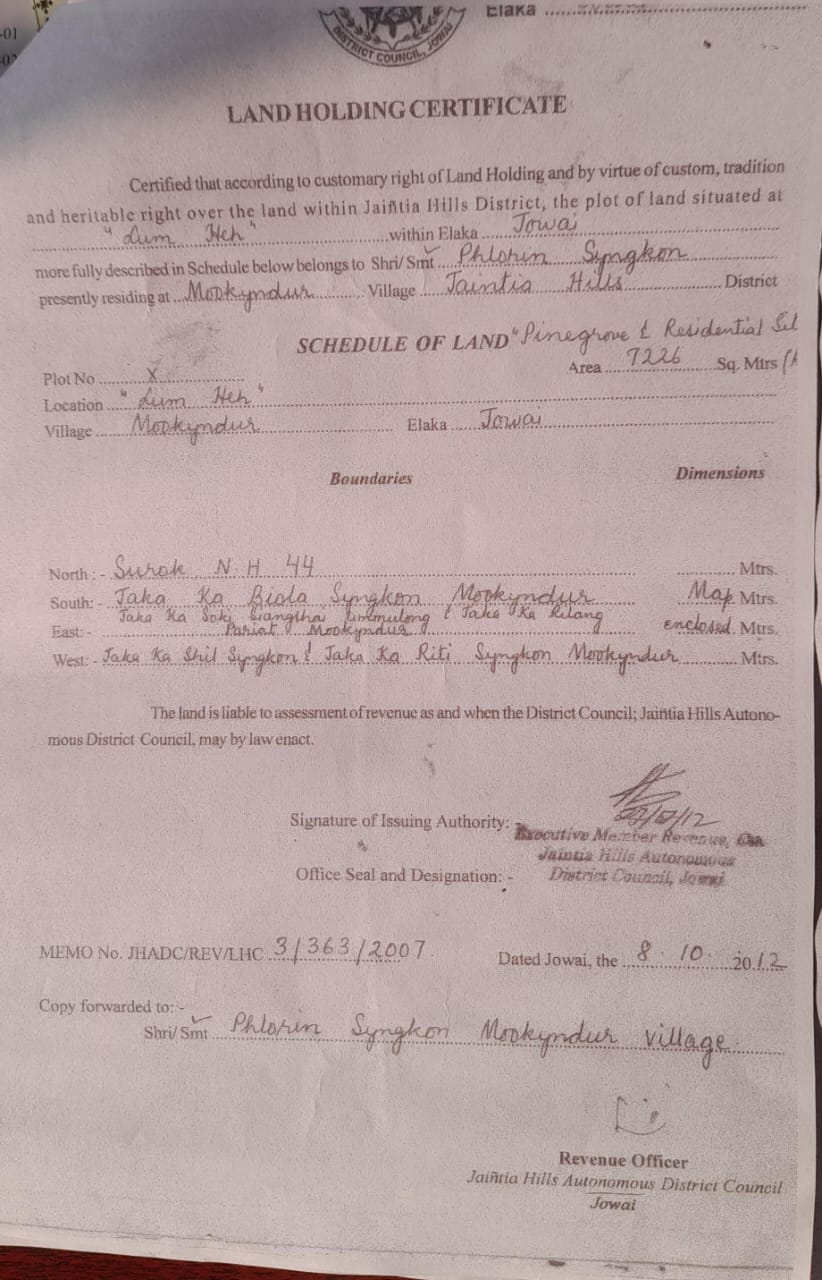 -01
Elaka
DISTRICT COUNCIL, JOWAI
LAND HOLDING CERTIFICATE
Certified that according to customary right of Land Holding and by virtue of custom, tradition
and heritable right over the land within Jaiñtia Hills District, the plot of land situated at
"Lum Heh" within Elaka Jowai
more fully described in Schedule below belongs to Shri/ Smt Phlorin Syngkon
presently residing at Mookyndur Village Jaintia Hills District
SCHEDULE OF LAND "Pinegrove & Residential
Plot No X Area 7226 Sq. Mtrs
Location "Lum Heh"
Village Mookyndur Elaka Jowai
Boundaries Dimensions
North : - Surok N.H 44 Mtrs.
South: - Jaka Ka Biola Syngkon Mookyndur Map Mtrs.
Jaka Ka Soki & Jaka Ka Rilang
East: - Pariat Mookyndur enclosed Mtrs.
West: - Jaka Ka Shil Syngkon & Jaka Ka Riti Syngkon Mookyndur Mtrs.
The land is liable to assessment of revenue as and when the District Council; Jaiñtia Hills Autono-
mous District Council, may by law enact.
Signature of Issuing Authority: -
Executive Member Revenue,
Jaintia Hills Autonomous
Office Seal and Designation: - District Council, Jowai
MEMO No. JHADC/REV/LHC 3/363/2007. Dated Jowai, the 8.10. 2012
Copy forwarded to: -
Shri/ Smt Phlorin Syngkon Mookyndur village.
Revenue Officer
Jaiñtia Hills Autonomous District Council
Jowai